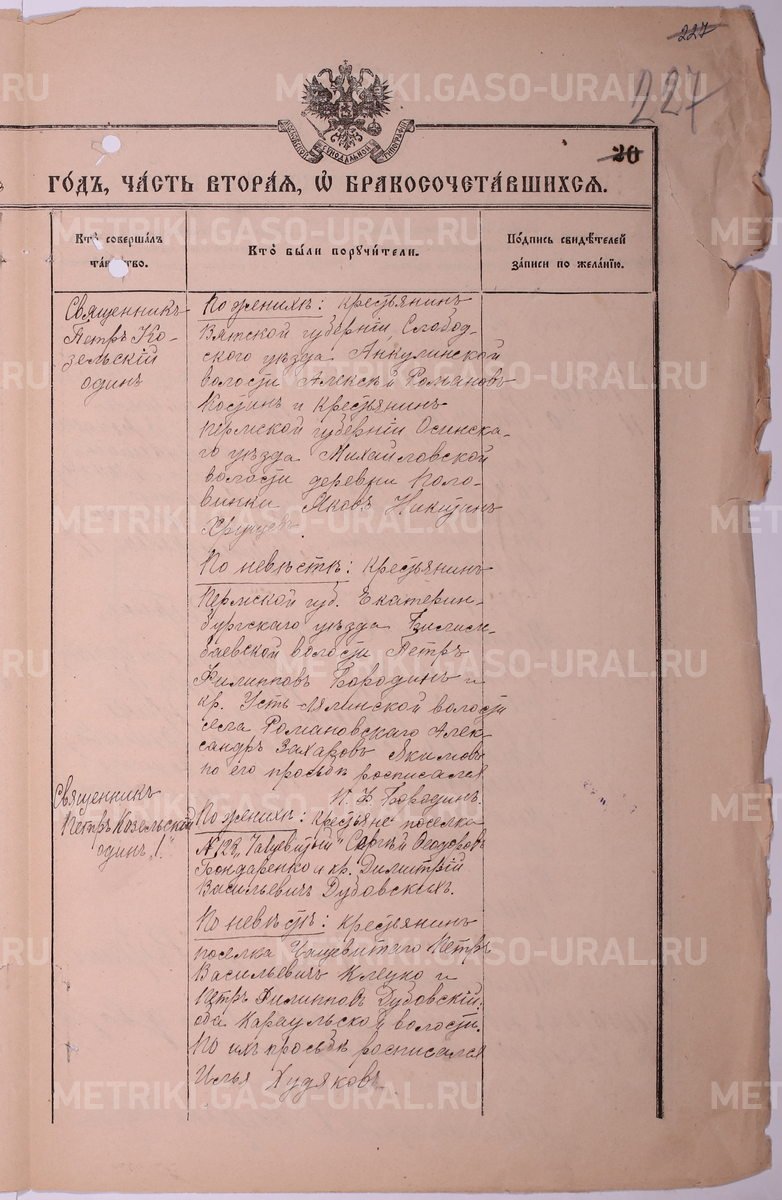 227
227
МОСКОВСКОЙ СѴНОДАЛЬНОЙ ТИПОГРАФІИ
20
ГО́ДЪ, ЧА́СТЬ ВТОРА́Я, Ѿ БРАКОСОЧЕТА́ВШИХСЯ.
Кто̀ соверша́лъ та́инство.
Кто̀ бы́ли поручи́тели.
По́дпись свидѣ́телей за́писи по жела́нїю.
Священникъ
Петръ Ко-
зельскій
одинъ
По женихѣ: крестьянинъ
Вятской губерніи, Слобод-
ского уѣзда
волости Алексѣй Романовъ
Костинъ и крестьянинъ
Пермской губерніи Осинска-
го уѣзда Михайловской
волости деревни Поло-
винки Яковъ Никитинъ
По невѣстѣ: крестьянинъ
Пермской губ. Екатерин-
бургскаго уѣзда Билим-
баевской волости Петръ
Филипповъ Бородинъ и
кр. Усть-Лялинской волости
села Романовскаго Алек-
сандръ Захаровъ Якимовъ
по его просьбѣ росписался
П. Ф. Бородинъ.
Священникъ
Петръ Козельскій
одинъ
По женихѣ: крестьяне поселка
№ 129 „Чащевитый" Сергѣй Ѳеодоровъ
Бондаренко и кр. Димитрій
Васильевичъ Дубовскихъ.
По невѣстѣ: крестьянинъ
поселка Чащевитаго Петръ
Васильевичъ Клецко и
Петръ Филипповъ Дубовскій,
оба Караульской волости.
По ихъ просьбѣ росписался
Илья Худяковъ
METRIKI.GASO-URAL.RU